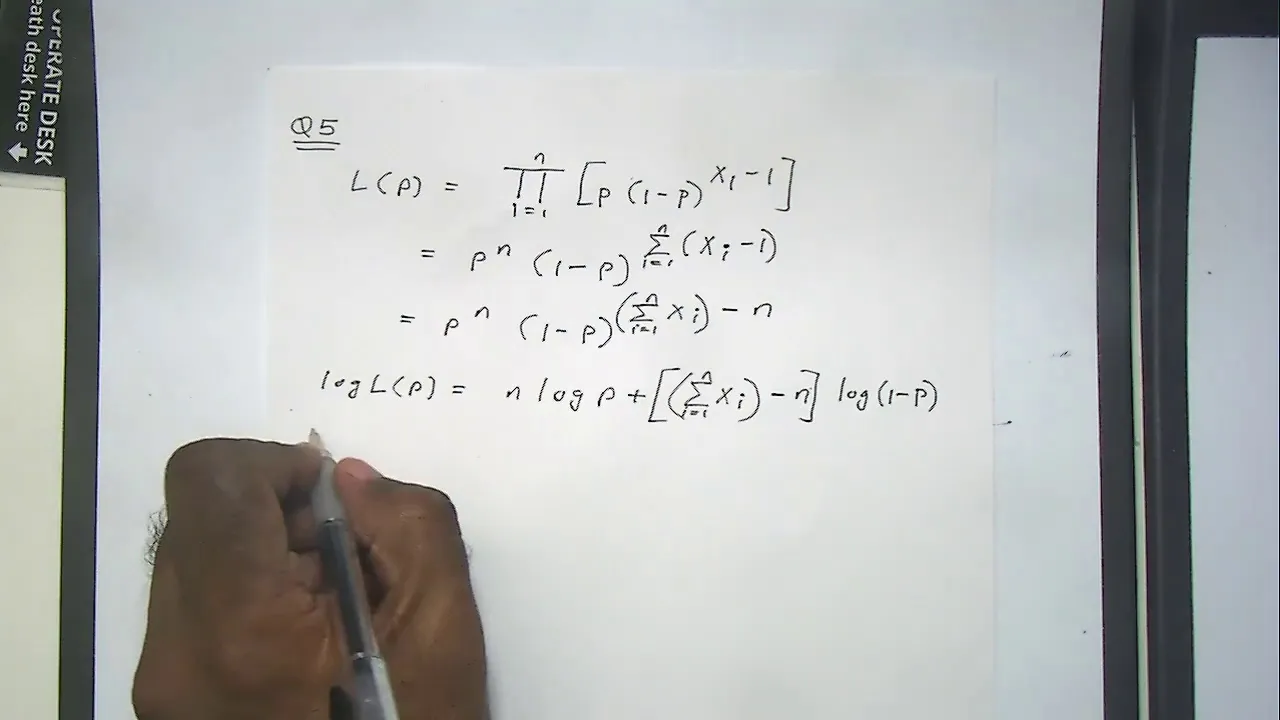 OPERATE DESK
eath desk here
Q5
L(p) = ∏_{i=1}^{n} [p (1-p)^{x_i - 1}]
= p^n (1-p)^{∑_{i=1}^{n} (x_i - 1)}
= p^n (1-p)^{(∑_{i=1}^{n} x_i) - n}
log L(p) = n log p + [(∑_{i=1}^{n} x_i) - n] log(1-p)